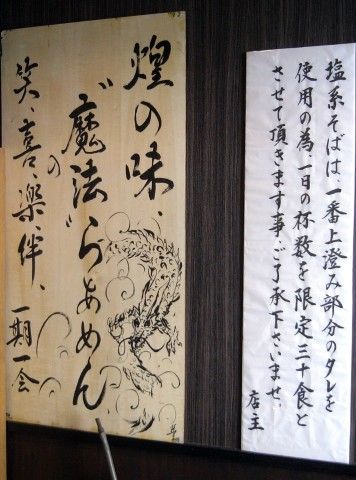 塩系そばは、一番上澄み部分のタレを
使用の為、一日の杯数を限定三十食と
させて頂きます事、ご了承下さいませ。
店主
煌の味、
〝魔法らぁめん〟
笑、喜、楽、の伴、
一期一会